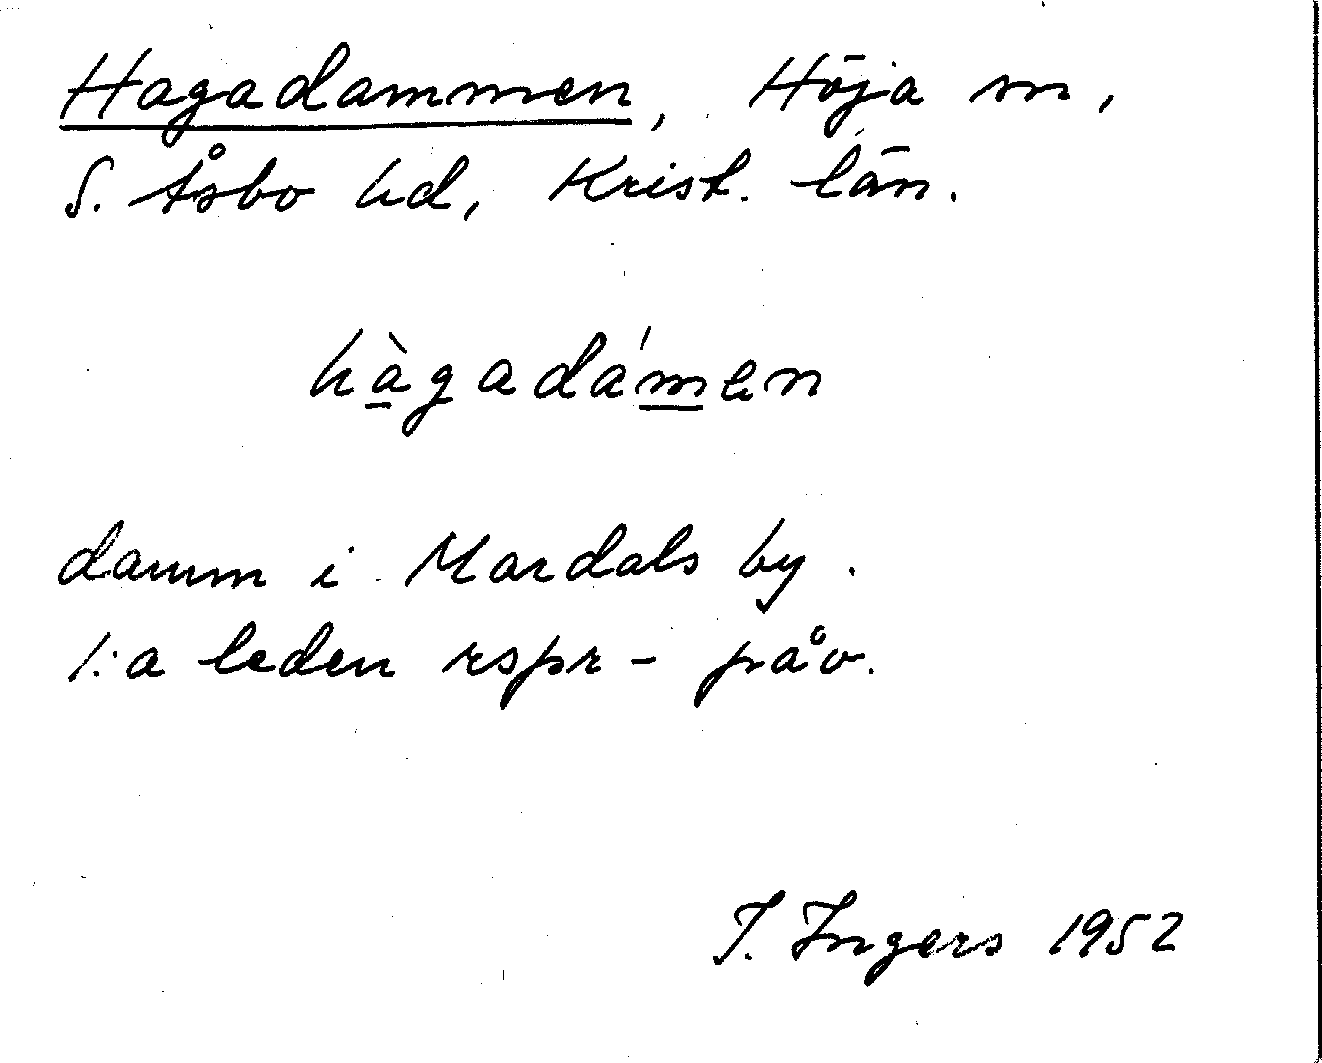 Hagadammen, Höja sn,
S. Åsbo hd, Krist. län.
hàgadám̲en
damm i Mardals by.
1:a leden rspr - påv.
I. Ingers 1952